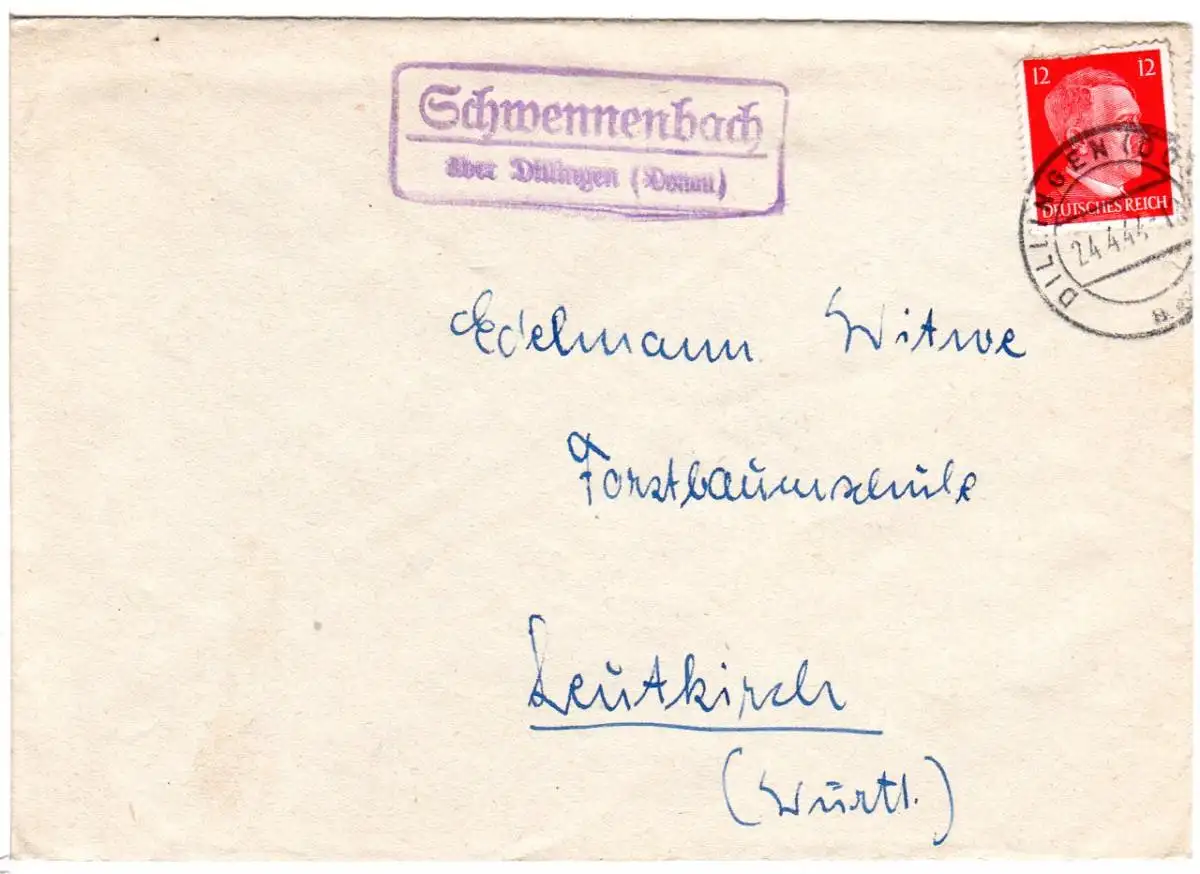 Schwennenbach
über Dillingen (Donau)
12 12
DEUTSCHES REICH
DILLINGEN (DO
24.4.44.-1
Edelmann Witwe
Forstbaumschule
Leutkirch
(Württ.)